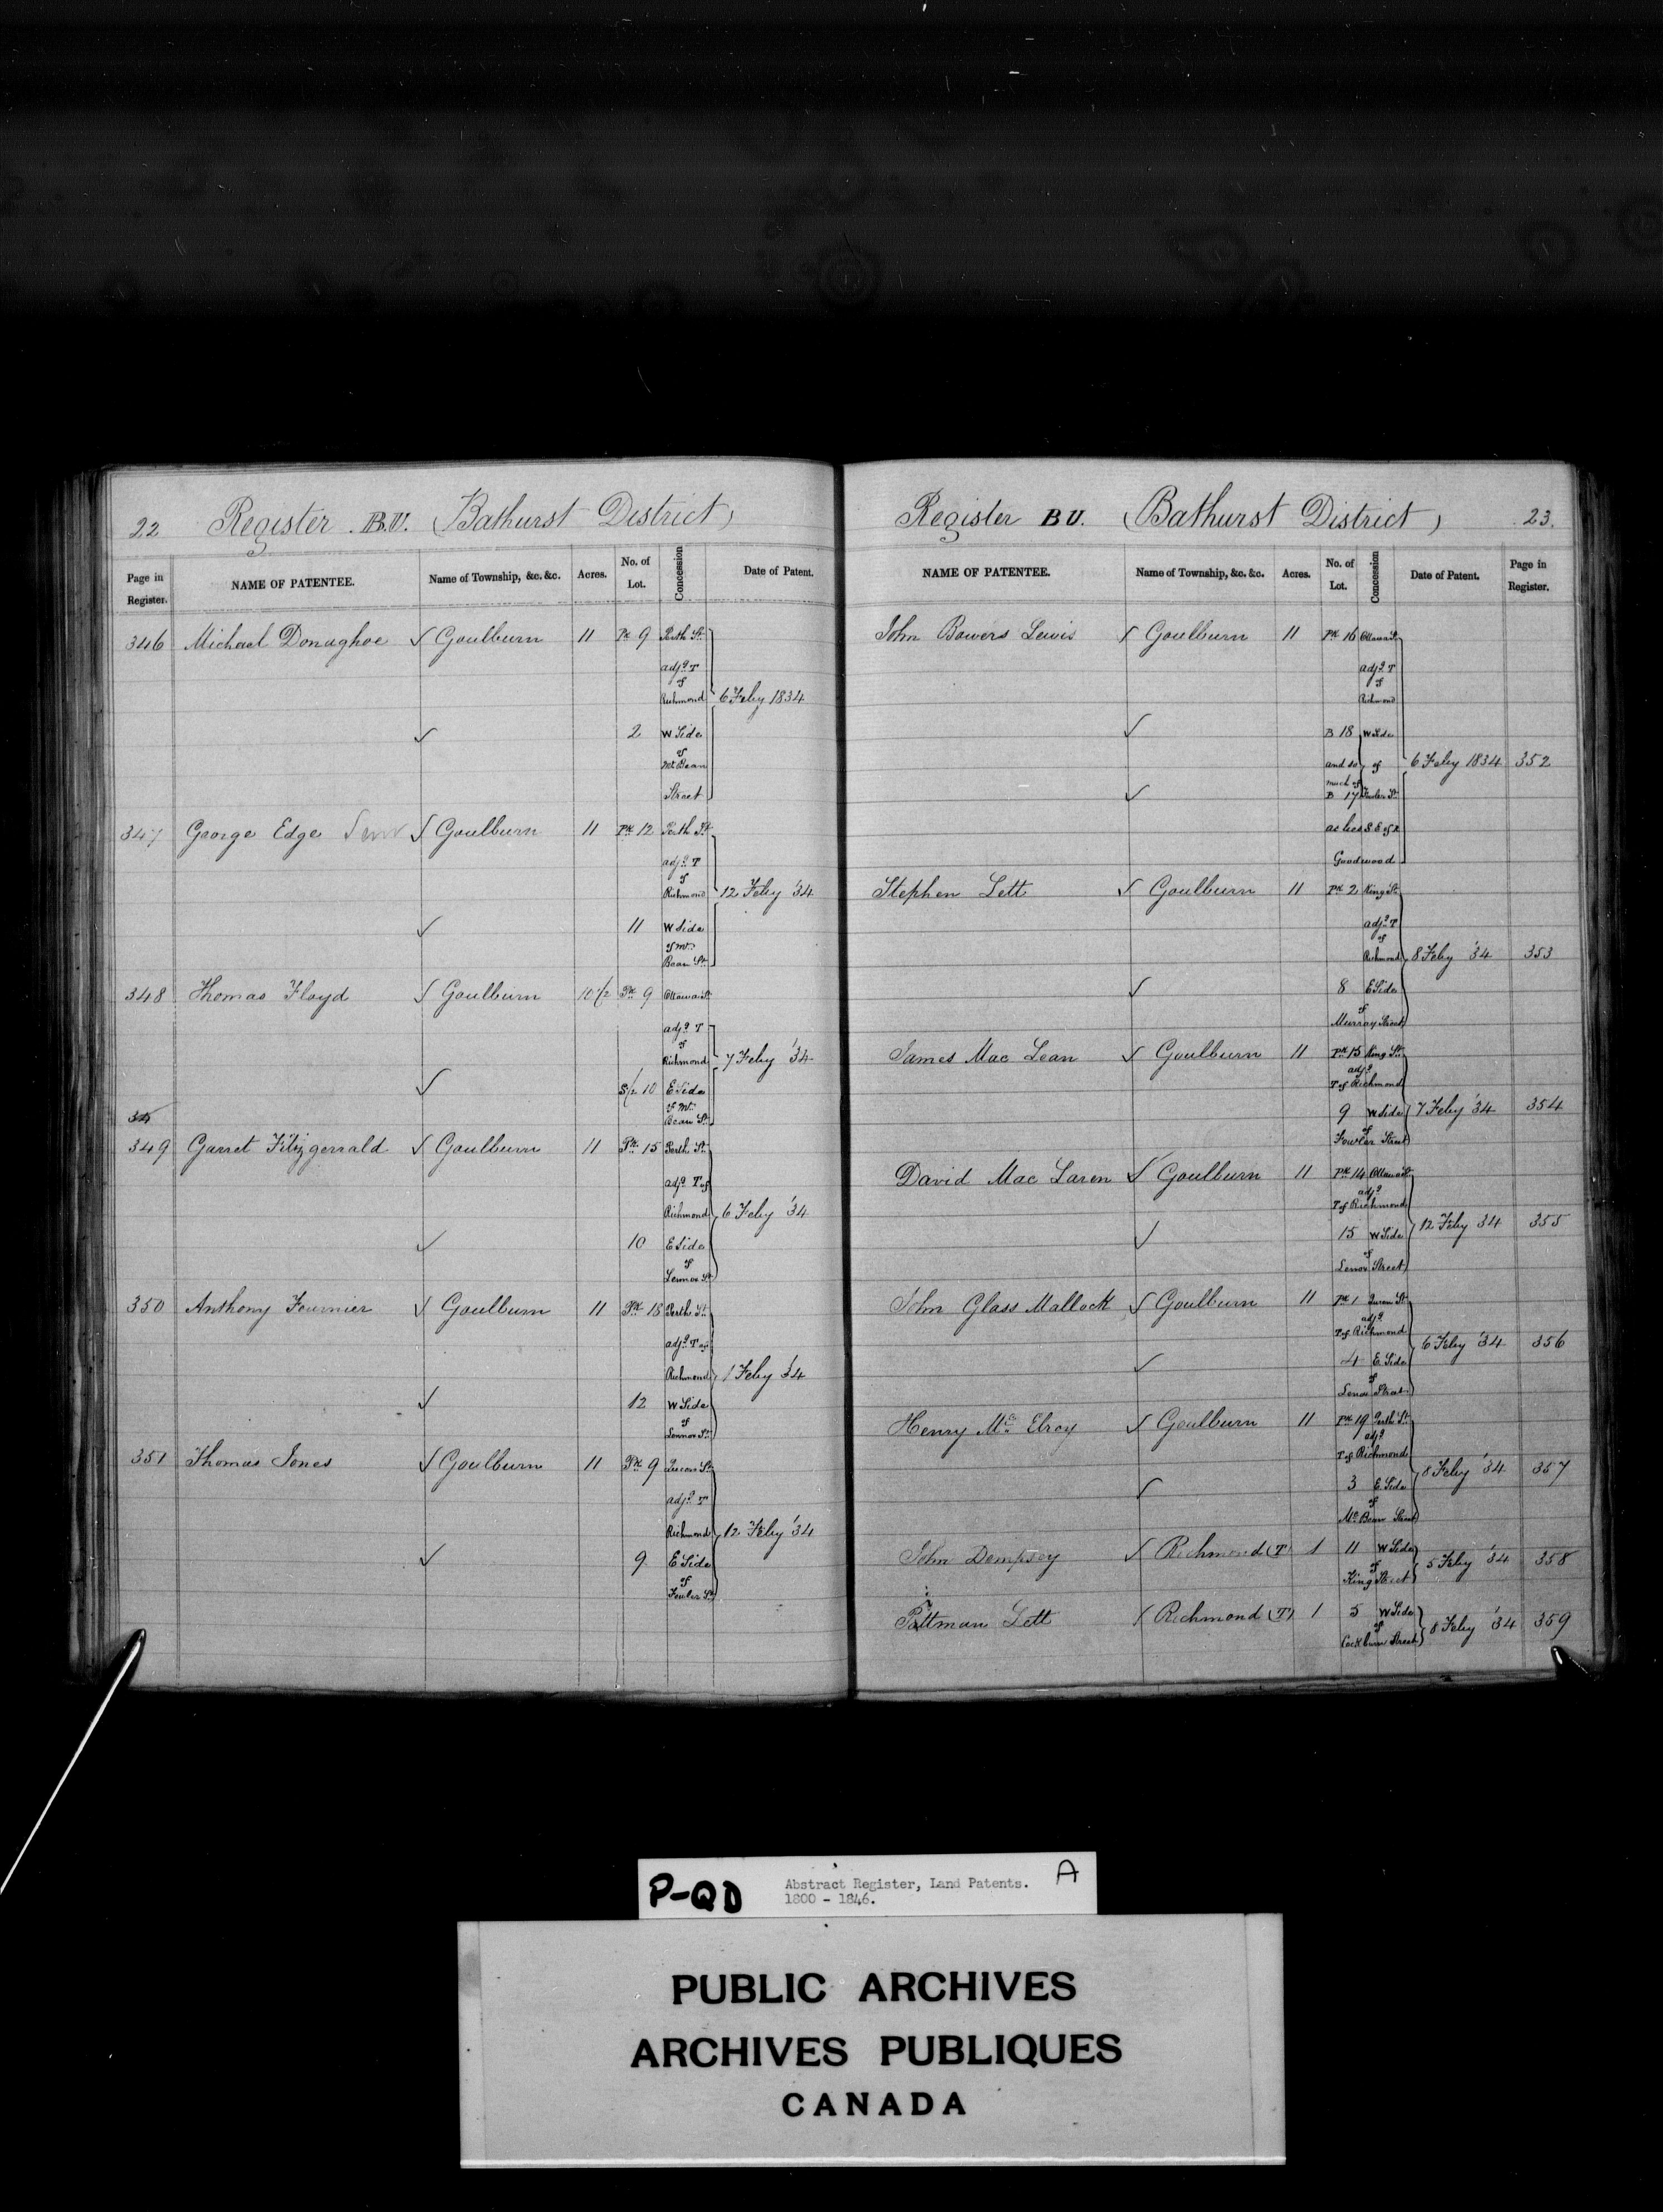 22 Register B.U. (Bathurst District)
Page in Register. NAME OF PATENTEE. Name of Township, &c. &c. Acres. No. of Lot. Concession Date of Patent.
346 Michael Donaghoe ✓ Goulburn 11 Pk 9 Perth St.
adjg T
of
Richmond 6 Feby 1834
✓ 2 W Side
of
McBean
Street
347 George Edge ✓ Goulburn 11 Pk 12 Perth St
adjg T
of
Richmond 12 Feby '34
✓ 11 W Side
of Mc
Bean St.
348 Thomas Floyd ✓ Goulburn 10 1/2 Pk 9 Ottawa St
adjg T
of
Richmond 7 Feby '34
✓ S/2 10 E Side
of Mc
Bean St.
349 Garret Fitzgerrald ✓ Goulburn 11 Pk 15 Perth St.
adjg T of
Richmond 6 Feby '34
✓ 10 E Side
of
Lennox St
350 Anthony Fournier ✓ Goulburn 11 Pk 18 Perth St.
adjg T of
Richmond 1 Feby '34
✓ 12 W Side
of
Lennox St.
351 Thomas Jones ✓ Goulburn 11 Pk 9 Queen St.
adjg T
Richmond 12 Feby '34
✓ 9 E Side
of
Fowler St.
Register B U. (Bathurst District) 23.
NAME OF PATENTEE. Name of Township, &c. &c. Acres. No. of Lot. Concession Date of Patent. Page in Register.
John Bowers Lewis ✓ Goulburn 11 Pk 16 Ottawa St
adjg T
of
Richmond
✓ B 18 W Side
and so of 6 Feby 1834 352
much of
✓ B 17 Fowler St
as lies S E of R
Goodwood
Stephen Lett ✓ Goulburn 11 Pk 2 King St.
adjg T
of
Richmond 8 Feby '34 353
✓ 8 E Side
of
Murray Street
James Mac Lean ✓ Goulburn 11 Pk 15 King St.
adjg
T of Richmond
9 W Side 7 Feby '34 354
of
Fowler Street
David Mac Laren ✓ Goulburn 11 Pk 14 Ottawa St
adjg
T of Richmond
✓ 15 W Side 12 Feby 34 355
of
Lenox Street
John Glass Mallock ✓ Goulburn 11 Pk 1 Queen St
adjg
T of Richmond
✓ 4 E Side 6 Feby '34 356
of
Lenox Street
Henry Mc Elroy ✓ Goulburn 11 Pk 19 Perth St.
adjg
T of Richmond
✓ 3 E Side 8 Feby '34 357
of
Mc Bean Street
John Dempsey ✓ Richmond (T) 1 11 W Side
of 5 Feby '34 358
King Street
Pittman Lett ✓ Richmond (T) 1 5 W Side
of 8 Feby '34 359
Cockburn Street
P-QD Abstract Register, Land Patents. A
1800 - 1846.
PUBLIC ARCHIVES
ARCHIVES PUBLIQUES
CANADA